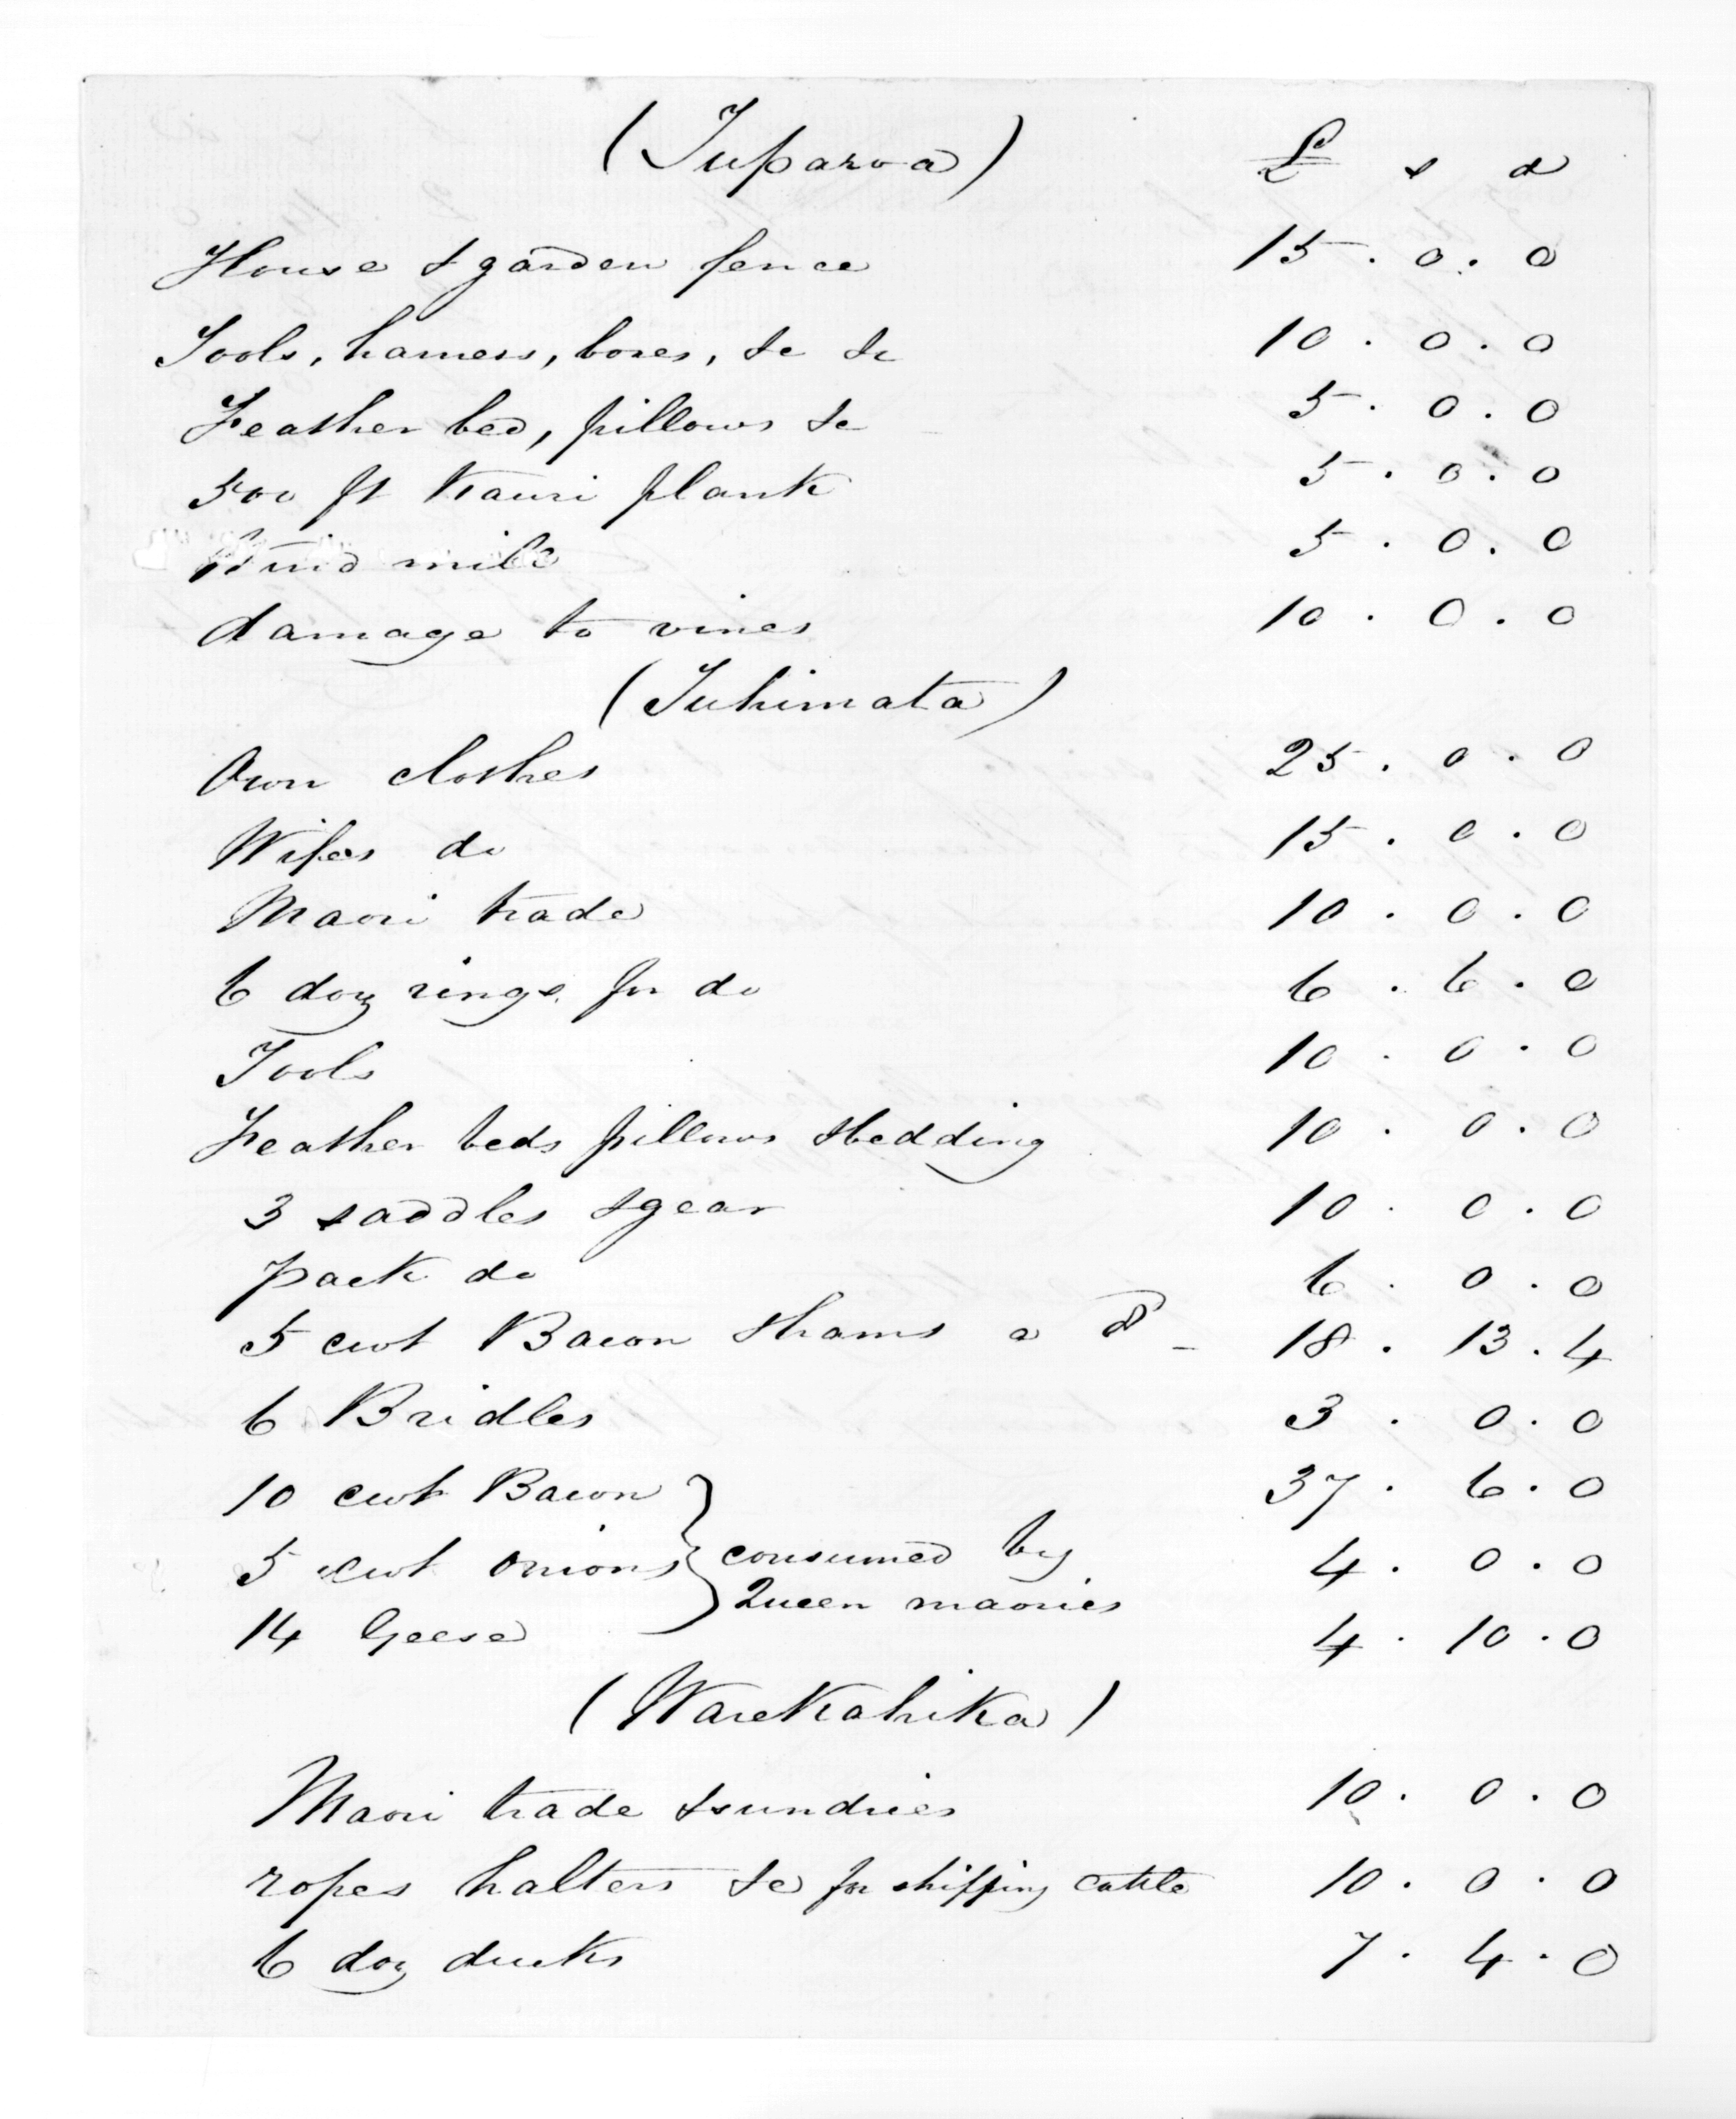 (Tuparoa) £ s d
House & garden fence 15 . 0 . 0
Tools, harness, boxes, &c &c 10 . 0 . 0
Feather bed, pillows &c 5 . 0 . 0
500 ft Kauri plank 5 . 0 . 0
Wind mill 5 . 0 . 0
damage to vines 10 . 0 . 0
(Tuhimata)
Own clothes 25 . 0 . 0
Wifes do 15 . 0 . 0
Maori trade 10 . 0 . 0
6 doz rings for do 6 . 6 . 0
Tools 10 . 0 . 0
Feather beds pillows & bedding 10 . 0 . 0
3 saddles & gear 10 . 0 . 0
pack do 6 . 0 . 0
5 cwt Bacon & hams a 8d 18 . 13 . 4
6 Bridles 3 . 0 . 0
10 cwt Bacon 37 . 6 . 0
5 cwt onions consumed by 4 . 0 . 0
Queen maories
14 Geese 4 . 10 . 0
(WareKahika)
Maori trade & sundries 10 . 0 . 0
ropes halters &c for shipping cattle 10 . 0 . 0
6 doz ducks 7 . 4 . 0